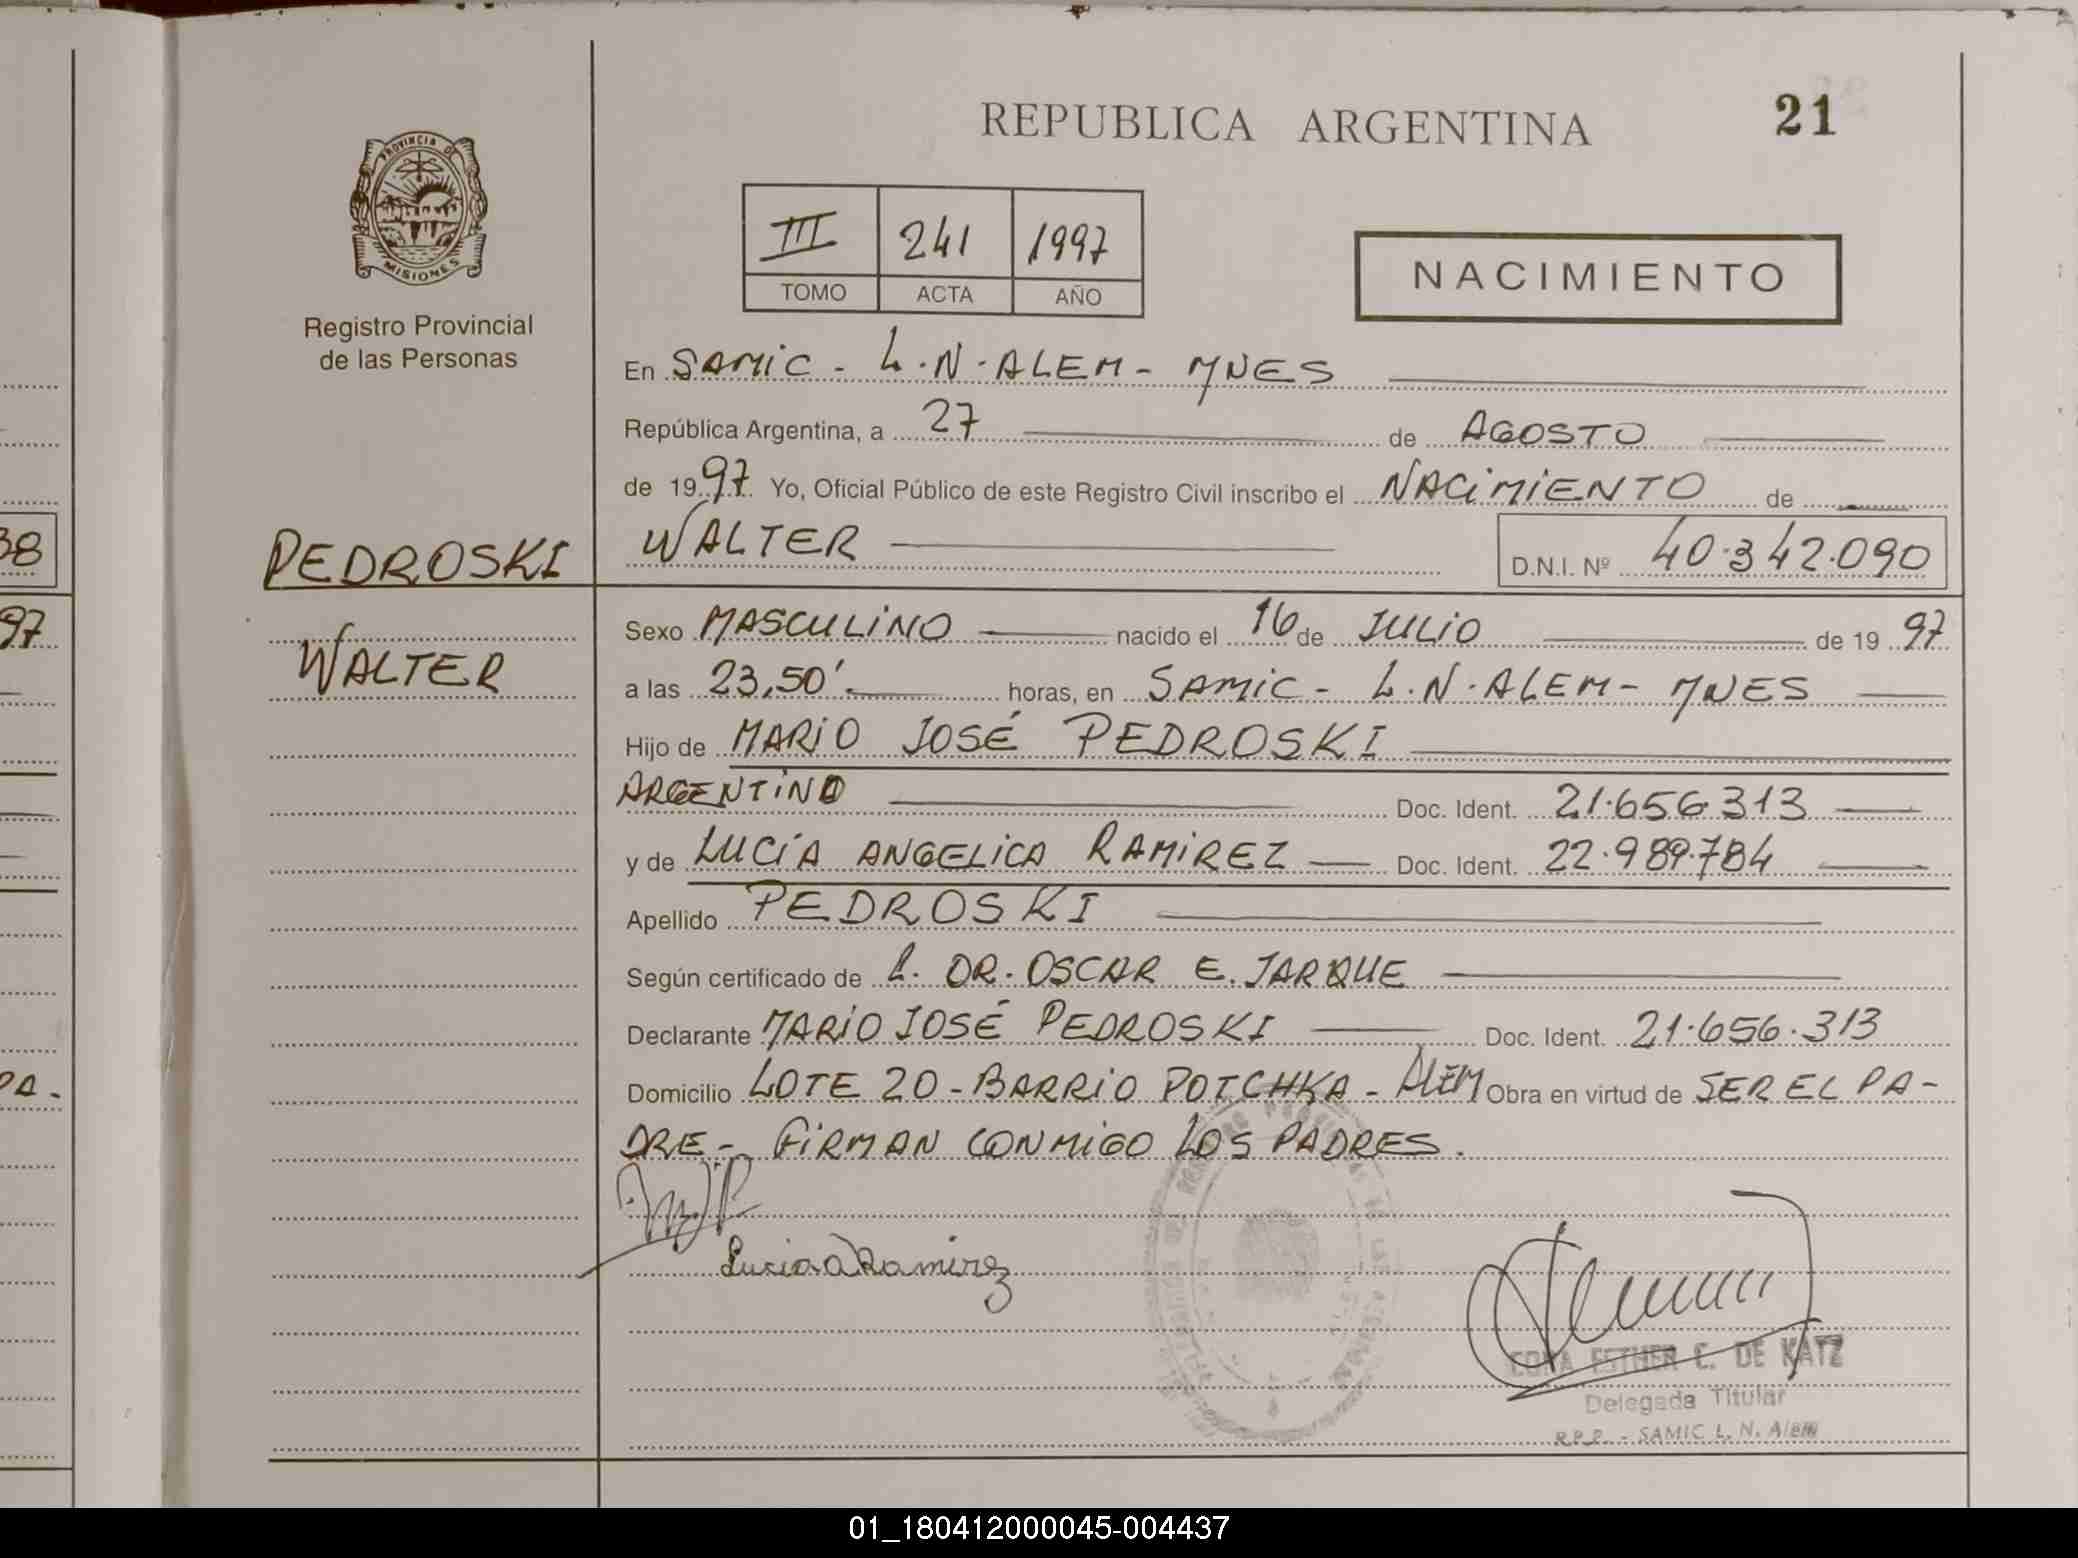 REPUBLICA ARGENTINA
21
PROVINCIA DE
MISIONES
Registro Provincial
de las Personas
III 241 1997
TOMO ACTA AÑO
NACIMIENTO
En SAMIC - L.N.ALEM - MNES
República Argentina, a 27 de AGOSTO
de 1997. Yo, Oficial Público de este Registro Civil inscribo el NACIMIENTO de
38
PEDROSKI
WALTER
D.N.I. Nº 40.342.090
97
WALTER
Sexo MASCULINO nacido el 16 de JULIO de 1997
a las 23,50'. horas, en SAMIC - L.N.ALEM - MNES
Hijo de MARIO JOSÉ PEDROSKI
ARGENTINO Doc. Ident. 21.656.313
y de LUCÍA ANGELICA RAMIREZ Doc. Ident. 22.989.784
Apellido PEDROSKI
Según certificado de DR. OSCAR E. JARQUE
Declarante MARIO JOSÉ PEDROSKI Doc. Ident. 21.656.313
PA.
Domicilio LOTE 20 - BARRIO POTCHKA - ALEM Obra en virtud de SER EL PA-
DRE - FIRMAN CONMIGO LOS PADRES.
Lucia A Ramirez
ESTHER C. DE KATZ
Delegada Titular
R.P.P. - SAMIC L. N. Alem
01_180412000045-004437